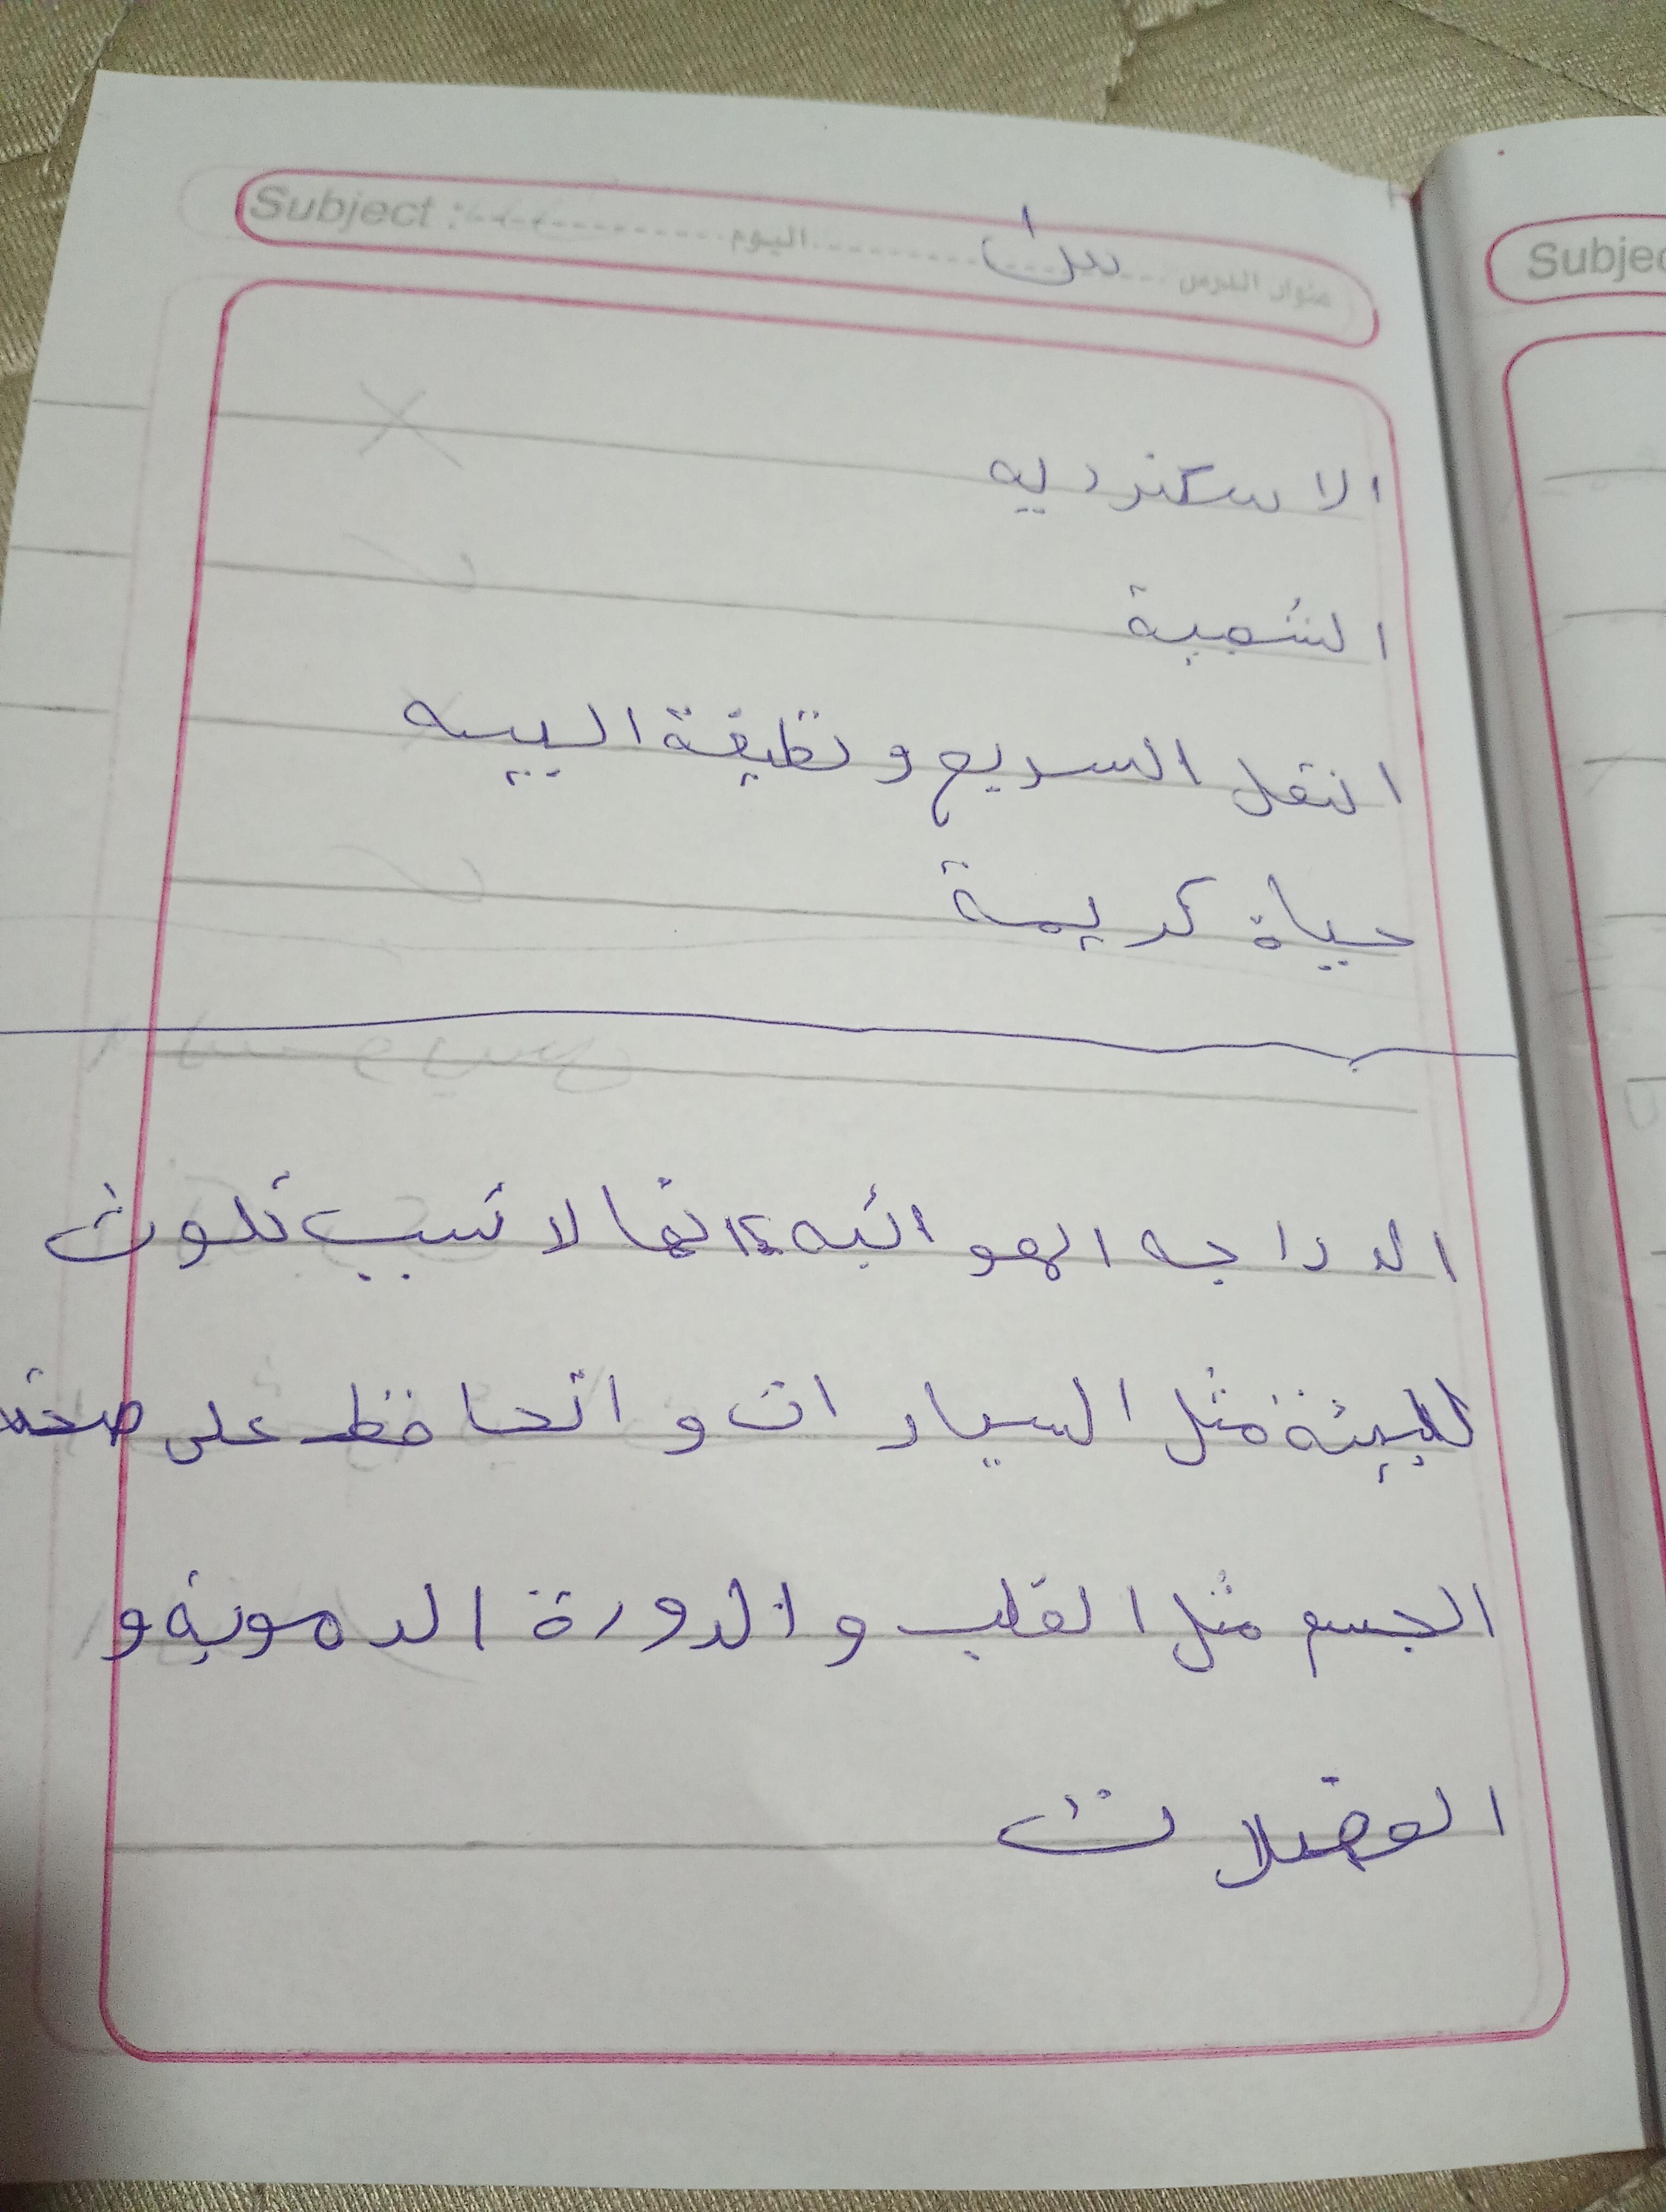 Subject : اليوم عنوان الدرس س١
Subjec
الاسكندريه
الشعبية
انقل السريع ونظيفة البيىه
حياة كريمة
الدراجه الهوائيه لانها لا تسبب تلوث
للبيئة مثل السيارات و اتحافظ على صحة
الجسم مثل القلب و الدورة الدمويه و
العضلات